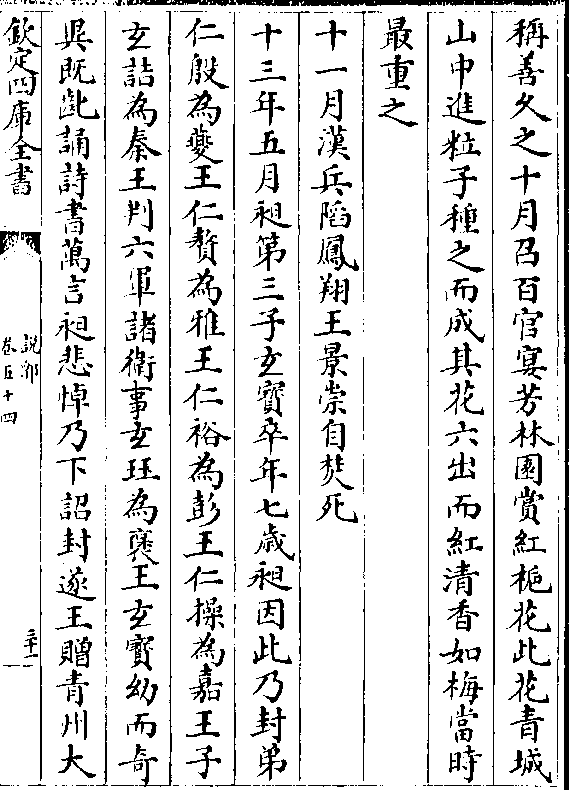 稱善久之十月召百官宴芳林園賞紅梔花此花青城
山中進粒子種之而成其花六出而紅清香如梅當時
最重之
十一月漢兵陷鳳翔王景崇自焚死
十三年五月昶第三子玄寶卒年七歲昶因此乃封弟
仁殷為夔王仁贄為雅王仁裕為彭王仁操為嘉王子
玄喆為秦王判六軍諸衛事玄珏為褒王玄寶幼而奇
異既齔誦詩書萬言昶悲悼乃下詔封遂王贈青州大
欽定四庫全書
說郛
卷五十四
三十二